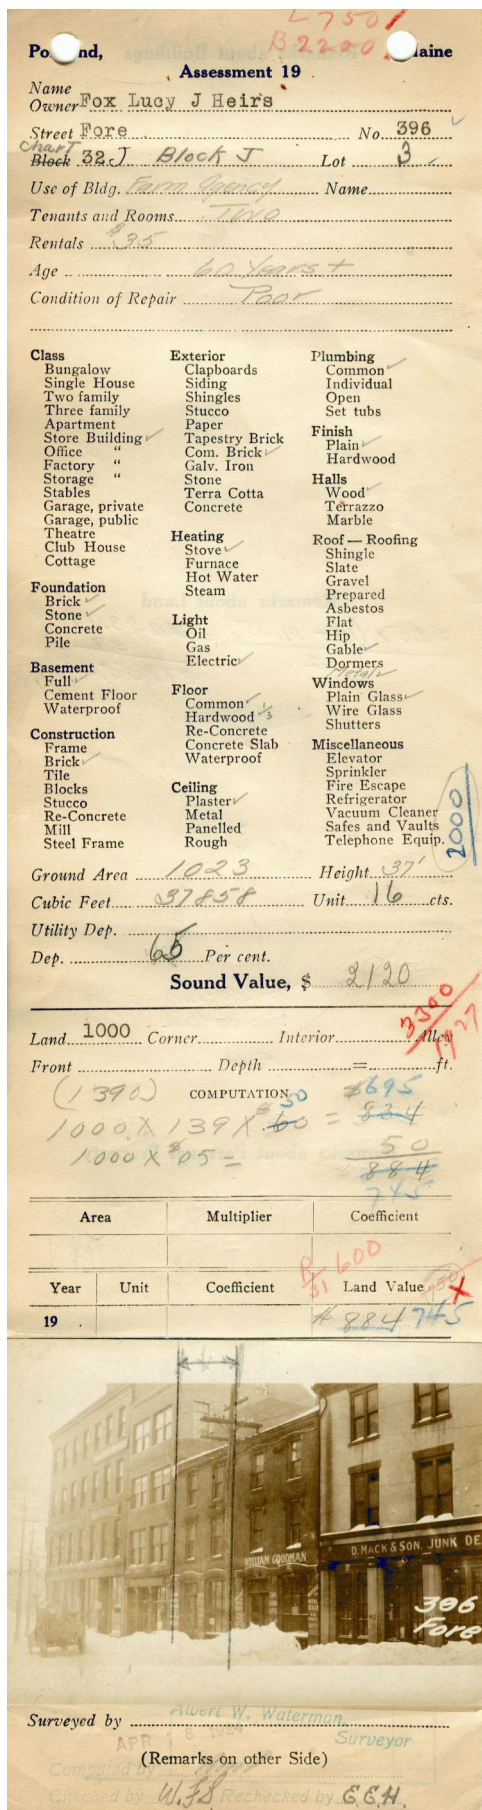 L 750
B 2200
Portland, Maine
Assessment 19
Name
Owner Fox Lucy J Heirs
Street Fore No. 396
Chart
Block 32 J Block J Lot 3
Use of Bldg. Farm Agency Name
Tenants and Rooms Two
Rentals $35
Age 60 Years +
Condition of Repair Poor
Class
Bungalow
Single House
Two family
Three family
Apartment
Store Building ✓
Office "
Factory "
Storage "
Stables
Garage, private
Garage, public
Theatre
Club House
Cottage
Foundation
Brick ✓
Stone ✓
Concrete
Pile
Basement
Full ✓
Cement Floor
Waterproof
Construction
Frame
Brick ✓
Tile
Blocks
Stucco
Re-Concrete
Mill
Steel Frame
Exterior
Clapboards
Siding
Shingles
Stucco
Paper
Tapestry Brick
Com. Brick ✓
Galv. Iron
Stone
Terra Cotta
Concrete
Heating
Stove ✓
Furnace
Hot Water
Steam
Light
Oil
Gas
Electric ✓
Floor
Common ✓
Hardwood 1/3
Re-Concrete
Concrete Slab
Waterproof
Ceiling
Plaster ✓
Metal
Panelled
Rough
Plumbing
Common ✓
Individual
Open
Set tubs
Finish
Plain ✓
Hardwood
Halls
Wood ✓
Terrazzo
Marble
Roof — Roofing
Shingle
Slate
Gravel
Prepared
Asbestos
Flat
Hip
Gable ✓
Dormers
Metal ✓
Windows
Plain Glass ✓
Wire Glass
Shutters
Miscellaneous
Elevator
Sprinkler
Fire Escape
Refrigerator
Vacuum Cleaner
Safes and Vaults
Telephone Equip.
2000
Ground Area 1023 Height 37'
Cubic Feet 37858 Unit 16 cts.
Utility Dep.
Dep. 65 Per cent.
Sound Value, $ 2120
3300
1927
Land 1000 Corner Interior Alley
Front Depth = ft.
(1390) COMPUTATION $695
50
1000 X 139 X $60 = 834
1000 X $05 = 50
884
745
Area Multiplier Coefficient
R/31 600
Year Unit Coefficient Land Value X
19 # 884 745
WILLIAM GOODMAN
D. MACK & SON, JUNK DE
396
Fore
Albert W. Waterman,
Surveyed by
APR 18 1924 Surveyor
(Remarks on other Side)
Computed by
Checked by W.F.S Rechecked by E.E.H.